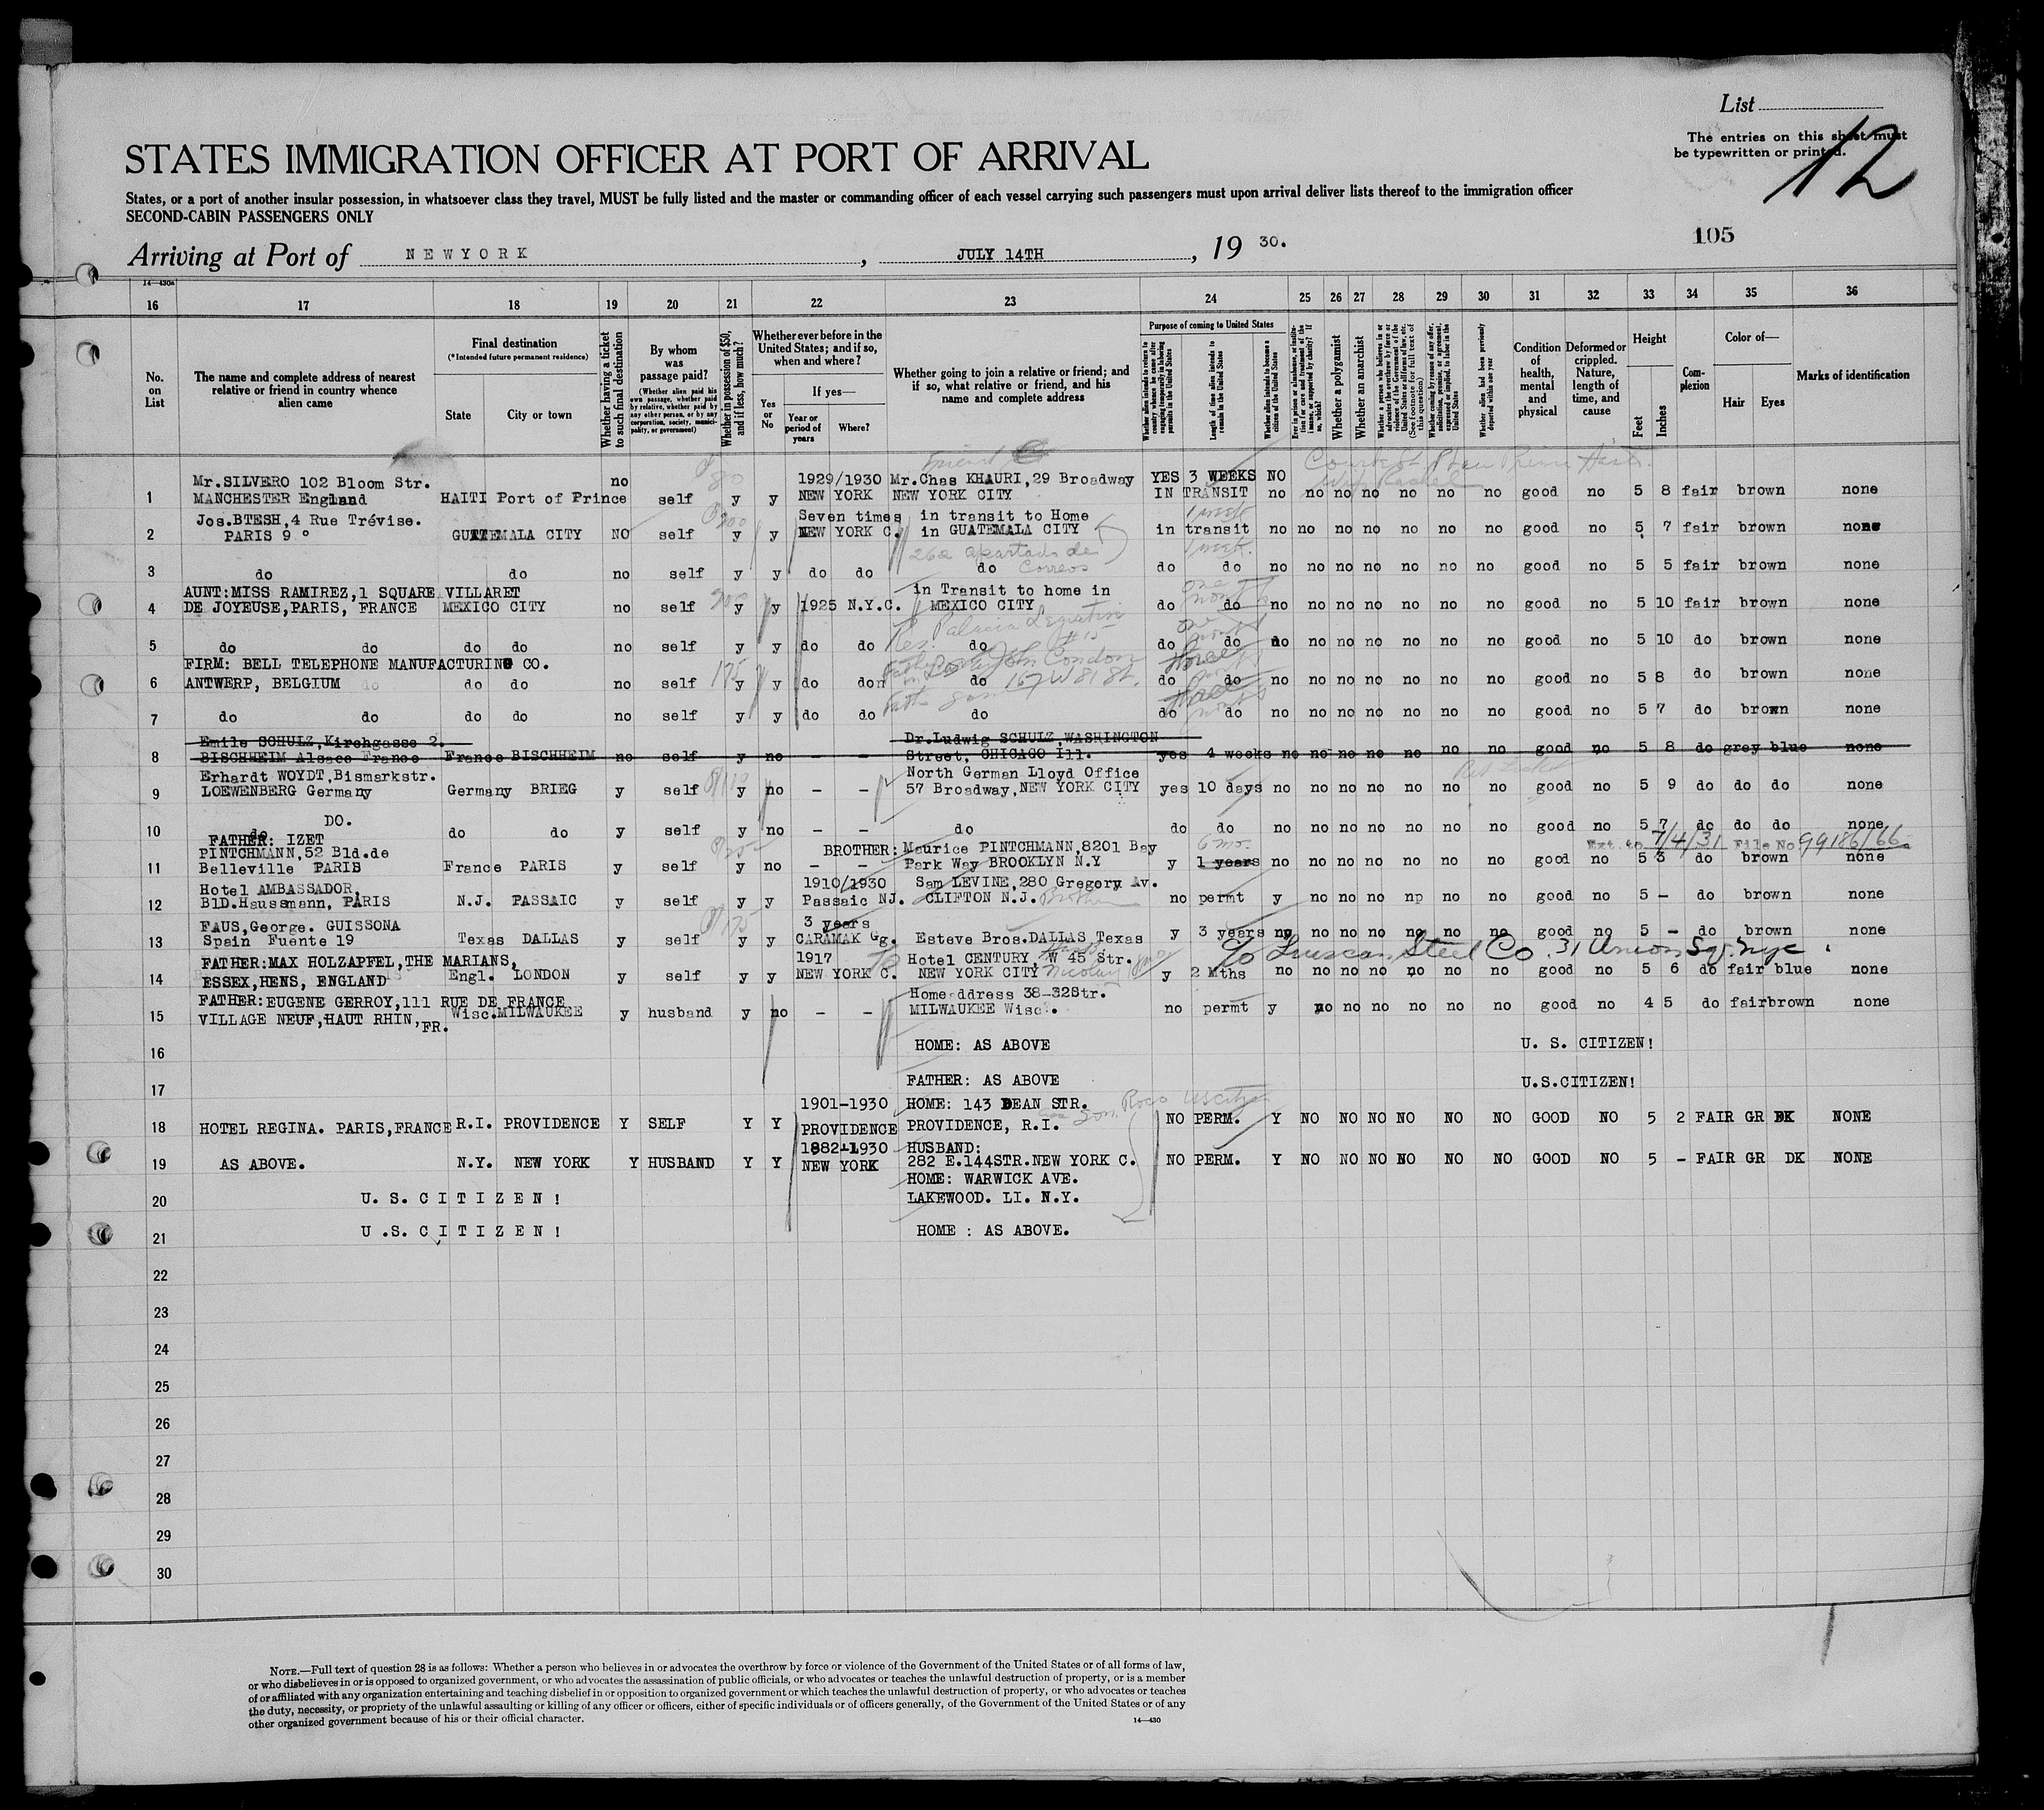 List
The entries on this sheet must
be typewritten or printed.
12
STATES IMMIGRATION OFFICER AT PORT OF ARRIVAL
States, or a port of another insular possession, in whatsoever class they travel, MUST be fully listed and the master or commanding officer of each vessel carrying such passengers must upon arrival deliver lists thereof to the immigration officer
SECOND-CABIN PASSENGERS ONLY
105
Arriving at Port of NEWYORK, JULY 14TH, 19 30.
14—430a
16 17 18 19 20 21 22 23 24 25 26 27 28 29 30 31 32 33 34 35 36
No. on List
The name and complete address of nearest relative or friend in country whence alien came
Final destination
(*Intended future permanent residence)
State
City or town
Whether having a ticket to such final destination
By whom was passage paid?
(Whether alien paid his own passage, whether paid by relative, whether paid by any other person, or by any corporation, society, municipality, or government)
Whether in possession of $50, and if less, how much?
Whether ever before in the United States; and if so, when and where?
Yes or No
If yes—
Year or period of years
Where?
Whether going to join a relative or friend; and if so, what relative or friend, and his name and complete address
Purpose of coming to United States
Whether alien intends to return to country whence he came after engaging temporarily in laboring pursuits in the United States
Length of time alien intends to remain in the United States
Whether alien intends to become a citizen of the United States
Whether a polygamist
Whether an anarchist
Whether alien had been previously deported within one year
Condition of health, mental and physical
Deformed or crippled. Nature, length of time, and cause
Height
Feet
Inches
Complexion
Color of—
Hair
Eyes
Marks of identification
Mr.SILVERO 102 Bloom Str. no 1929/1930 Mr.Chas KHAURI,29 Broadway YES 3 WEEKS NO
1 MANCHESTER England HAITI Port of Prince self y y NEW YORK NEW YORK CITY IN TRANSIT no no no no no no no good no 5 8 fair brown none
Jos.BTESH,4 Rue Trévise. Seven times in transit to Home 1 week
2 PARIS 9° GUATEMALA CITY NO self y y NEW YORK C. in GUATEMALA CITY in transit no no no no no no no good no 5 7 fair brown none
262 apartado de Correos 1 week.
3 do do no self y y do do do do do no no no no no no no good no 5 5 fair brown none
AUNT:MISS RAMIREZ,1 SQUARE VILLARET in Transit to home in one month
4 DE JOYEUSE,PARIS, FRANCE MEXICO CITY no self y y 1925 N.Y.C. MEXICO CITY do do no no no no no no no good no 5 10 fair brown none
5 do do do do no self y y do do do do do no no no no no no no good no 5 10 do brown none
FIRM: BELL TELEPHONE MANUFACTURING CO. John Condon
6 ANTWERP, BELGIUM do do do no self 175 y y do don do 167 W 81 St. do do no no no no no no no good no 5 8 do brown none
7 do do do do no self y y do do do do do no no no no no no no good no 5 7 do brown none
Emile SCHULZ,Kirchgasse 2. Dr.Ludwig SCHULZ,WASHINGTON
8 BISCHHEIM Alsace France France BISCHHEIM no self y no – – Street, CHICAGO Ill. yes 4 weeks no no no no no no no good no 5 8 do grey blue none
Erhardt WOYDT,Bismarkstr. North German Lloyd Office
9 LOEWENBERG Germany Germany BRIEG y self y no – – 57 Broadway,NEW YORK CITY yes 10 days no no no no no no no good no 5 9 do do do none
DO.
10 do do do y self y no – – do do do no no no no no no no good no 5 7 do do do none
FATHER: IZET Ext. to 7/4/31 File No. 99186/66
PINTCHMANN,52 Bld.de BROTHER:Maurice PINTCHMANN,8201 Bay 6 mo.
11 Belleville PARIS France PARIS y self y no – – Park Way BROOKLYN N.Y y 1 years no no no no no no no good no 5 3 do brown none
Hotel AMBASSADOR, 1910/1930 Sam LEVINE,280 Gregory Av.
12 BlD.Haussmann, PARIS N.J. PASSAIC y self y y Passaic NJ. CLIFTON N.J. Brother no permt y no no no np no no good no 5 – do brown none
FAUS,George. GUISSONA 3 years
13 Spain Fuente 19 Texas DALLAS y self y y CARAMAK Gg. Esteve Bros.DALLAS Texas y 3 years no no no no no no no good no 5 – do brown none
c/o Truscon Steel Co. 31 Union Sq. Nyc
FATHER:MAX HOLZAPFEL,THE MARIANS, 1917 Hotel CENTURY, W 45 Str.
14 ESSEX,HENS, ENGLAND Engl. LONDON y self y y NEW YORK C. NEW YORK CITY y 2 Mths no no no no no no no good no 5 6 do fair blue none
FATHER:EUGENE GERROY,111 RUE DE FRANCE Home ddress 38-32Str.
15 VILLAGE NEUF,HAUT RHIN,FR. Wisc.MILWAUKEE y husband y no – – MILWAUKEE Wisc. no permt y no no no no no no good no 4 5 do fair brown none
16 HOME: AS ABOVE U. S. CITIZEN!
17 FATHER: AS ABOVE U.S.CITIZEN!
1901-1930 HOME: 143 DEAN STR.
18 HOTEL REGINA. PARIS,FRANCE R.I. PROVIDENCE Y SELF Y Y PROVIDENCE PROVIDENCE, R.I. NO PERM. Y NO NO NO NO NO NO GOOD NO 5 2 FAIR GR DK NONE
1882-1930 HUSBAND:
19 AS ABOVE. N.Y. NEW YORK Y HUSBAND Y Y NEW YORK 282 E.144STR.NEW YORK C. NO PERM. Y NO NO NO NO NO NO GOOD NO 5 – FAIR GR DK NONE
HOME: WARWICK AVE.
20 U. S. C I T I Z E N ! LAKEWOOD. LI. N.Y.
21 U .S. C I T I Z E N ! HOME : AS ABOVE.
22
23
24
25
26
27
28
29
30
NOTE.—Full text of question 28 is as follows: Whether a person who believes in or advocates the overthrow by force or violence of the Government of the United States or of all forms of law,
or who disbelieves in or is opposed to organized government, or who advocates the assassination of public officials, or who advocates or teaches the unlawful destruction of property, or is a member
of or affiliated with any organization entertaining and teaching disbelief in or opposition to organized government or which teaches the unlawful destruction of property, or who advocates or teaches
the duty, necessity, or propriety of the unlawful assaulting or killing of any officer or officers, either of specific individuals or of officers generally, of the Government of the United States or of any
other organized government because of his or their official character.
14—430